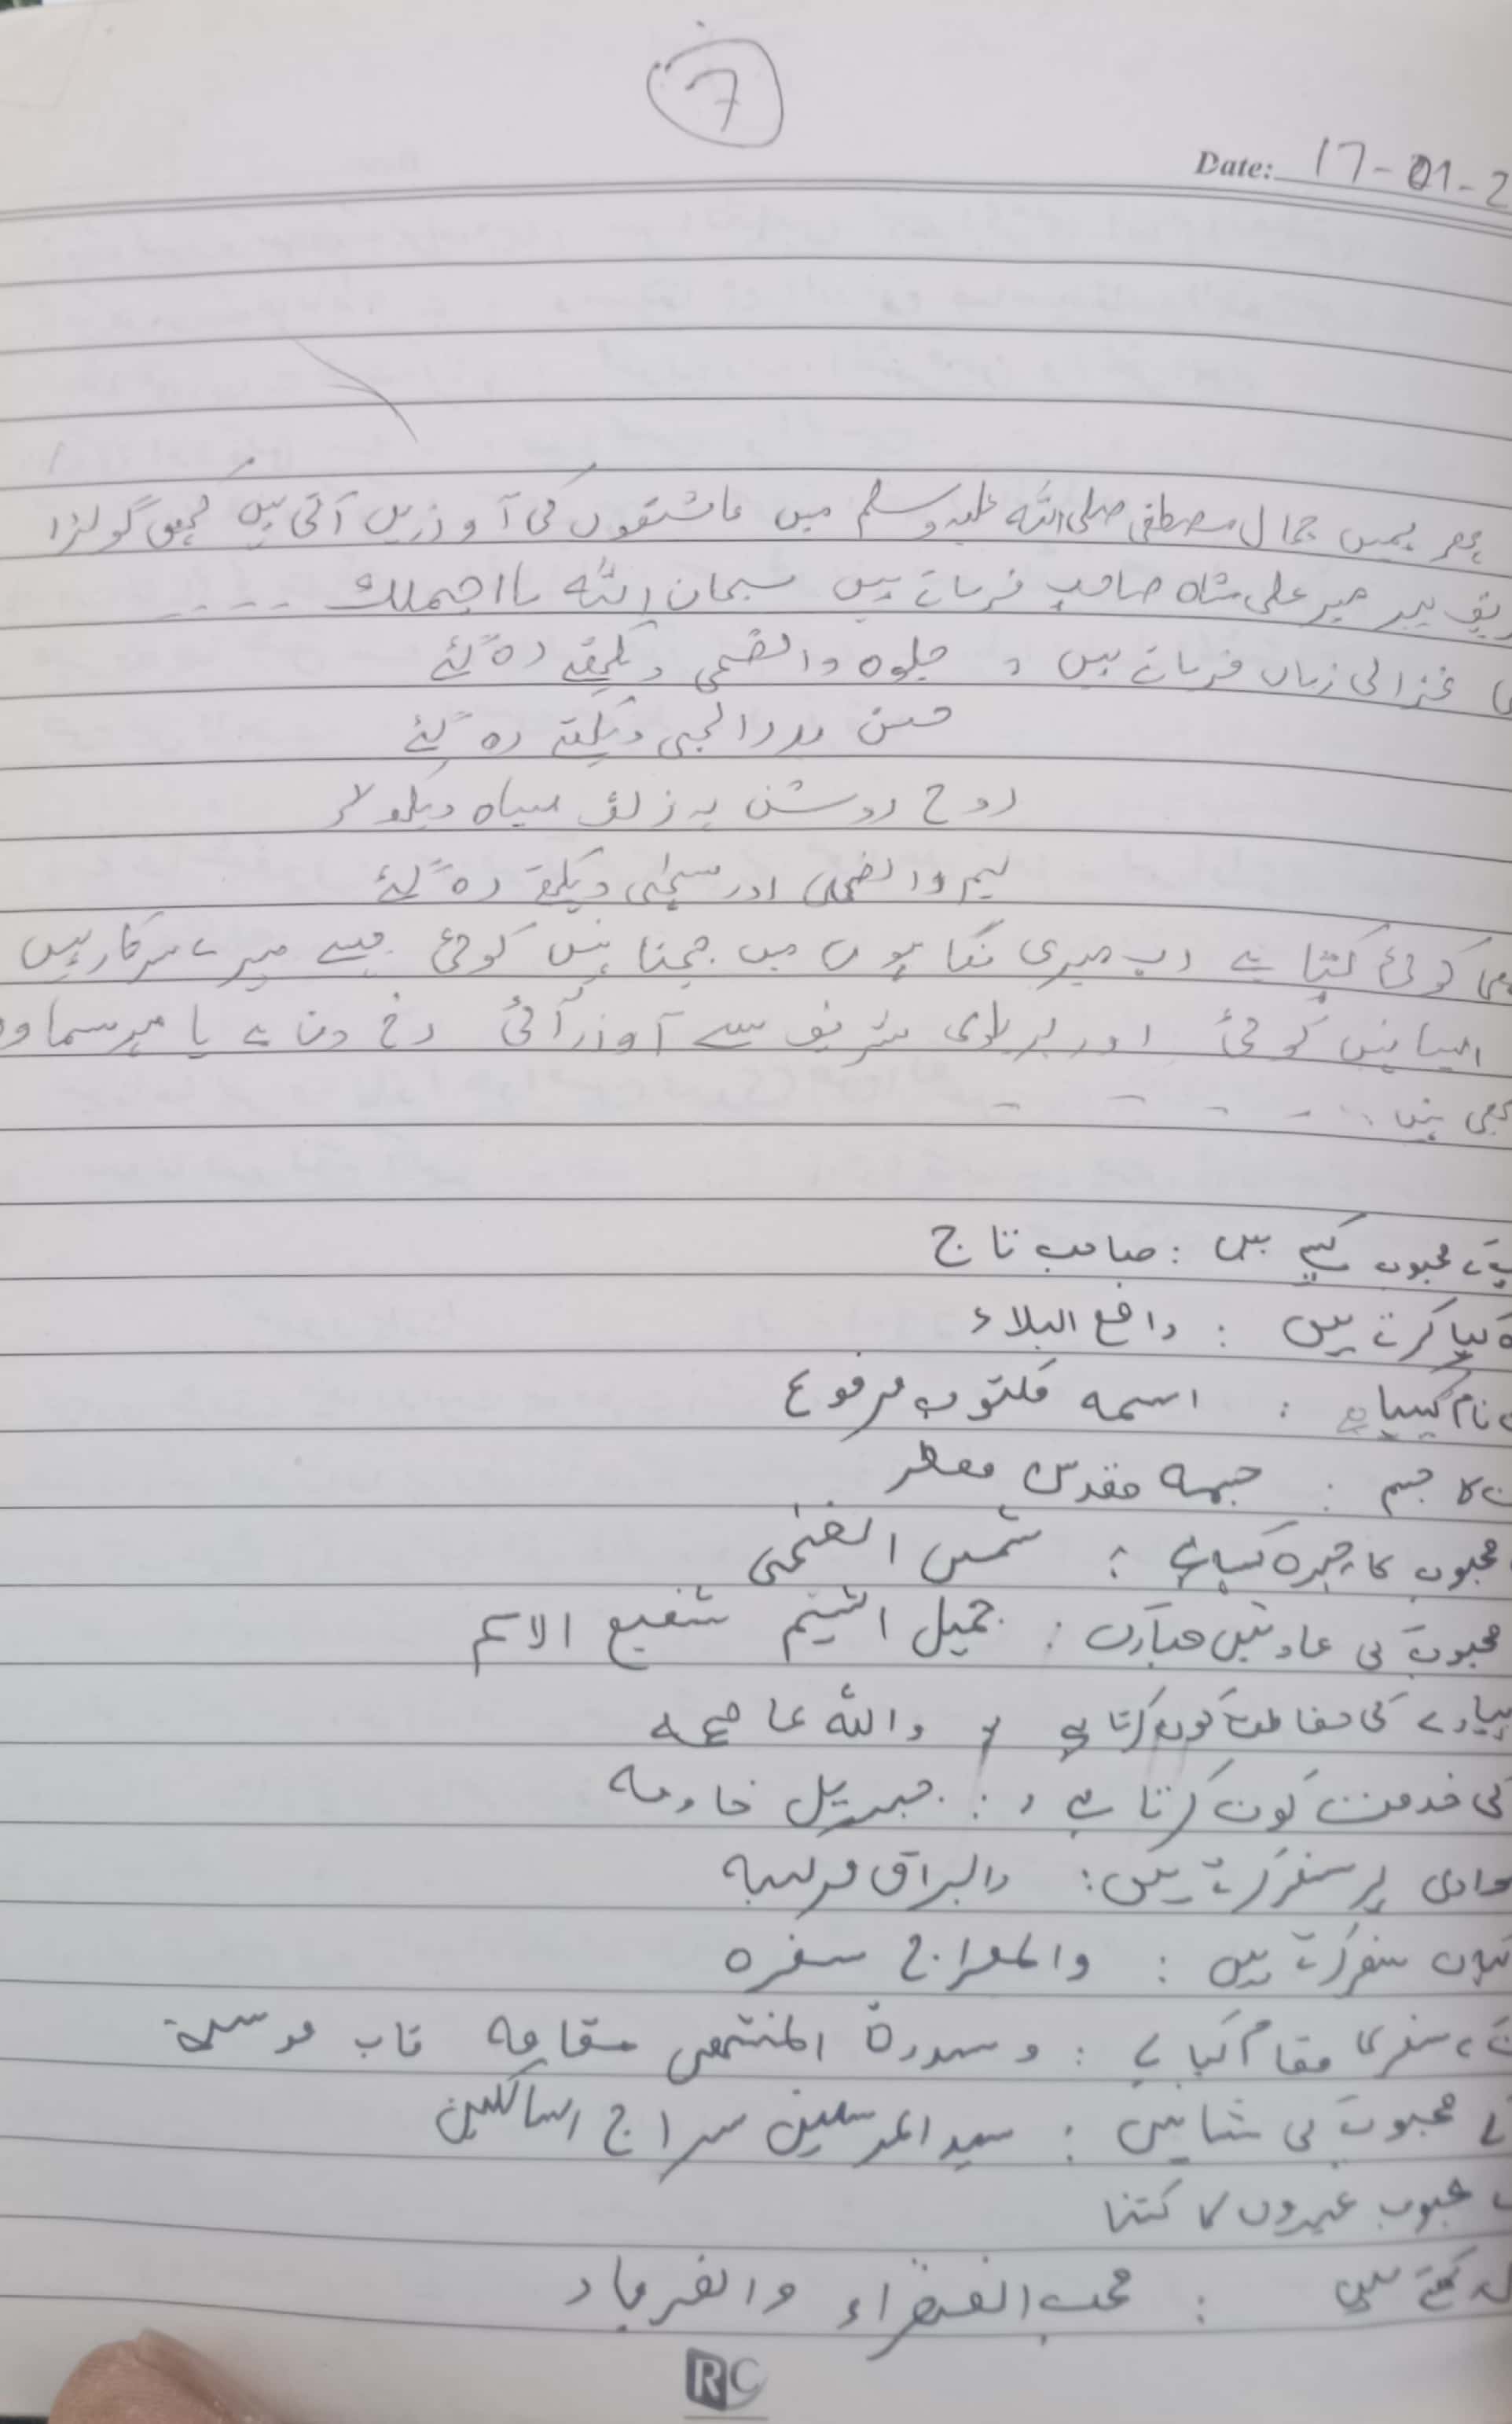 7
Date: 17-01-2
پھر ہمیں جمال مصطفی صلی اللہ علیہ وسلم میں عاشقوں کی آوزیں آتی ہیں کبھی گولڑا
پیر مہر علی شاہ صاحب فرماتے ہیں سبحان اللہ ما اجملک ----
غزالی زماں فرماتے ہیں جلوہ والضحی دیکھتے رہ گئے
حسن بدرالدجی دیکھتے رہ گئے
روح روشن پہ زلف سیاہ دیکھ کر
والضحی اور سجی دیکھتے رہ گئے
کوئی کہتا ہے اب میری نگاہوں میں جچتا نہیں کوئی جیسے میرے سرکار ہیں
ایسا نہیں کوئی اور بریلوی شریف سے آوزر آئی رخ دن ہے یا مہر سما
بھی نہیں -----
محبوب کیسے ہیں : صاحب تاج
کیا کرتے ہیں : دافع البلاء
نام کیسا ہے : اسمہ مکتوب مرفوع
کا جسم : جسمہ مقدس معطر
محبوب کا چہرہ کیسا ہے : شمس الضحی
محبوب کی عادتیں مبارک : جمیل الشیم شفیع الامم
پیارے کی حفاظت کون کرتا ہے واللہ عاصمہ
کی خدمت کون کرتا ہے : جبریل خادمہ
پر سفر کرتے ہیں : والبراق مرکبہ
سفر کرتے ہیں : والمعراج سفرہ
سفر کا مقام کیا ہے : وسدرۃ المنتھی مقامہ قاب قوسین
محبوب کی شانیں : سید المرسلین سراج السالکین
محبوب غیروں کا کتنا
رکھتے ہیں : محب الفقراء والغرباء
RC